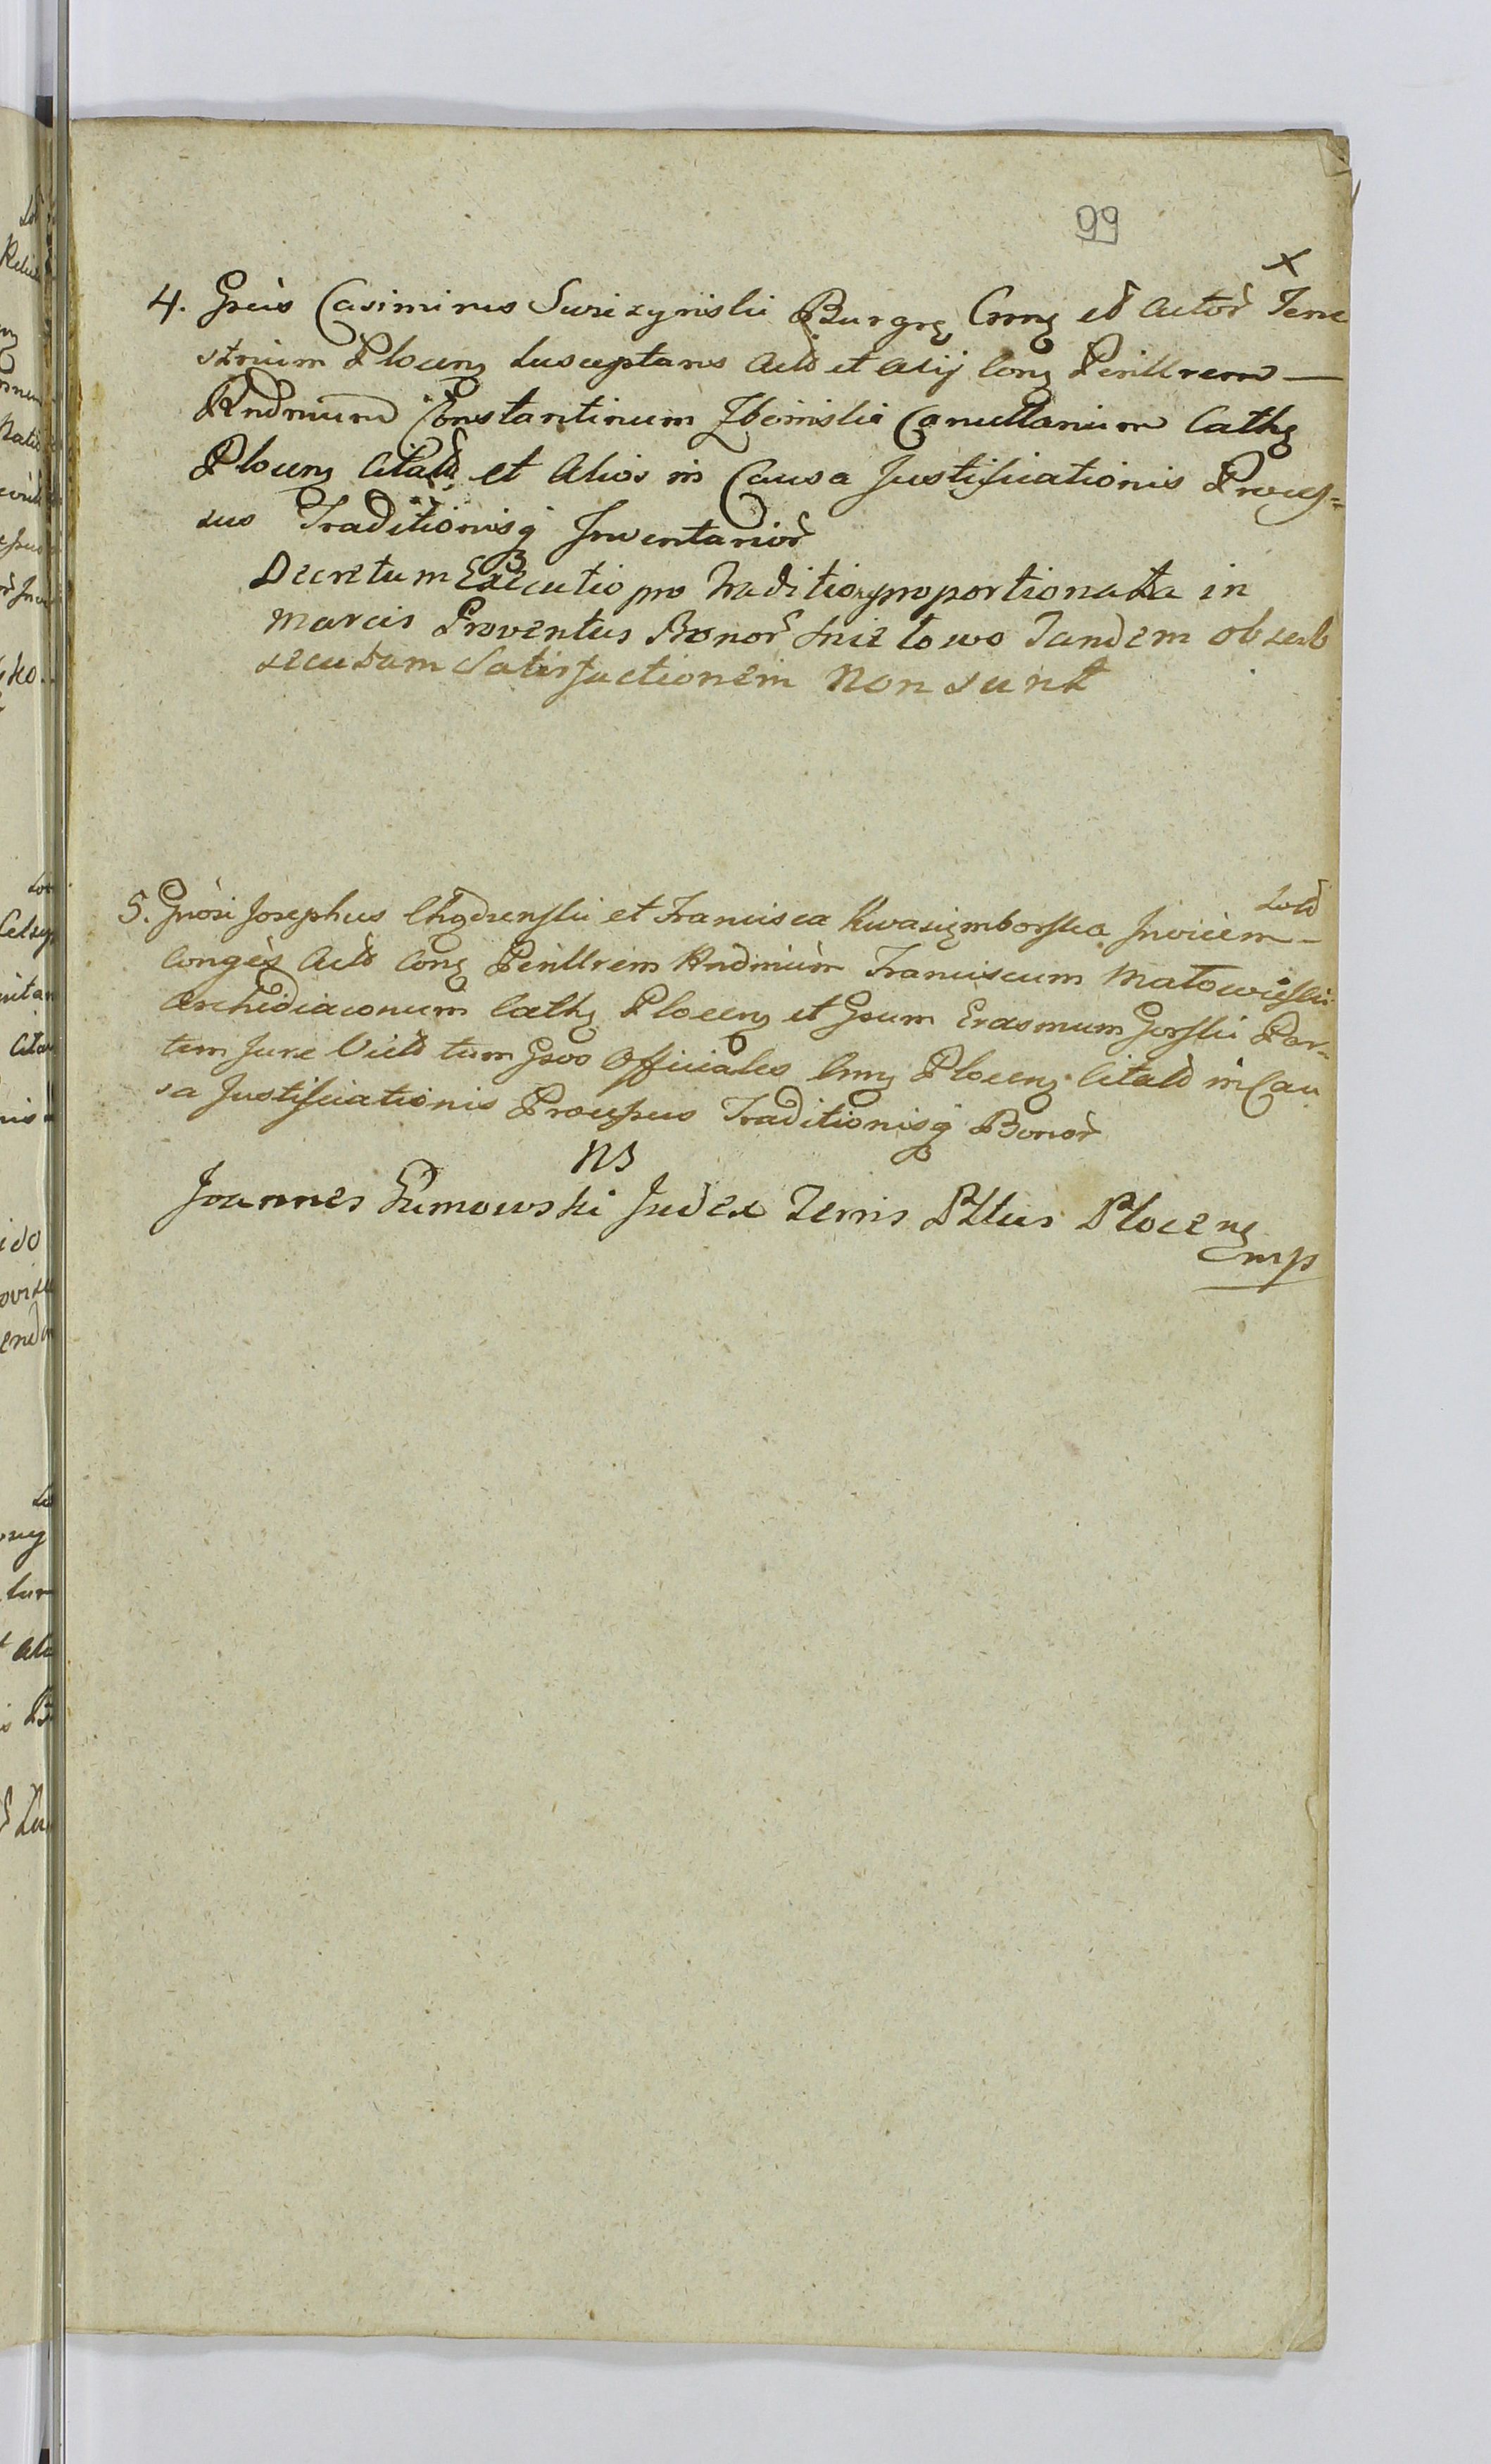 99
x
4. Gsus Casimirus Swiezynski Burgrę Crnę et Actor Terre
strium Plocenę susceptans Actõ et Alij Conę Perillrem —
Rndmum Constantinum Zboinski Cancellarium Cathę
Plocenę Citatõ et Alios in Causa Justificationis Proces=
sus Traditionisq Inventarior
Decretum Executio pro Traditione proportionata in
Marcis Proventus Bonor Tandem ob sub
secutam Satisfactionem Non sunt
5. Gnosi Josephus et Francisca Kwasięmborska Invicem —
Conges Actõ Conę Perillrem Rndmum Franciscum Matowieski
Archidiaconum Cathę Plocenę et Gsum Erasmum Gorski Par=
tem Jure Victõ tum Gsos Officiales Crnę Plocenę Citatõ in Cau
sa Justificationis Processus Traditionisq Bonor
NS
Joannes Rumowski Judex Terris Pltus Plocenę
mp